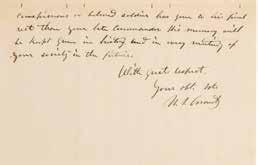 conspicuous or beloved soldier has gone to his final
rest than your late Commander His memory will
be kept green in history and in every meeting of
your society in the future.
With great respect,
Your obt. svt.
U. S. Grant